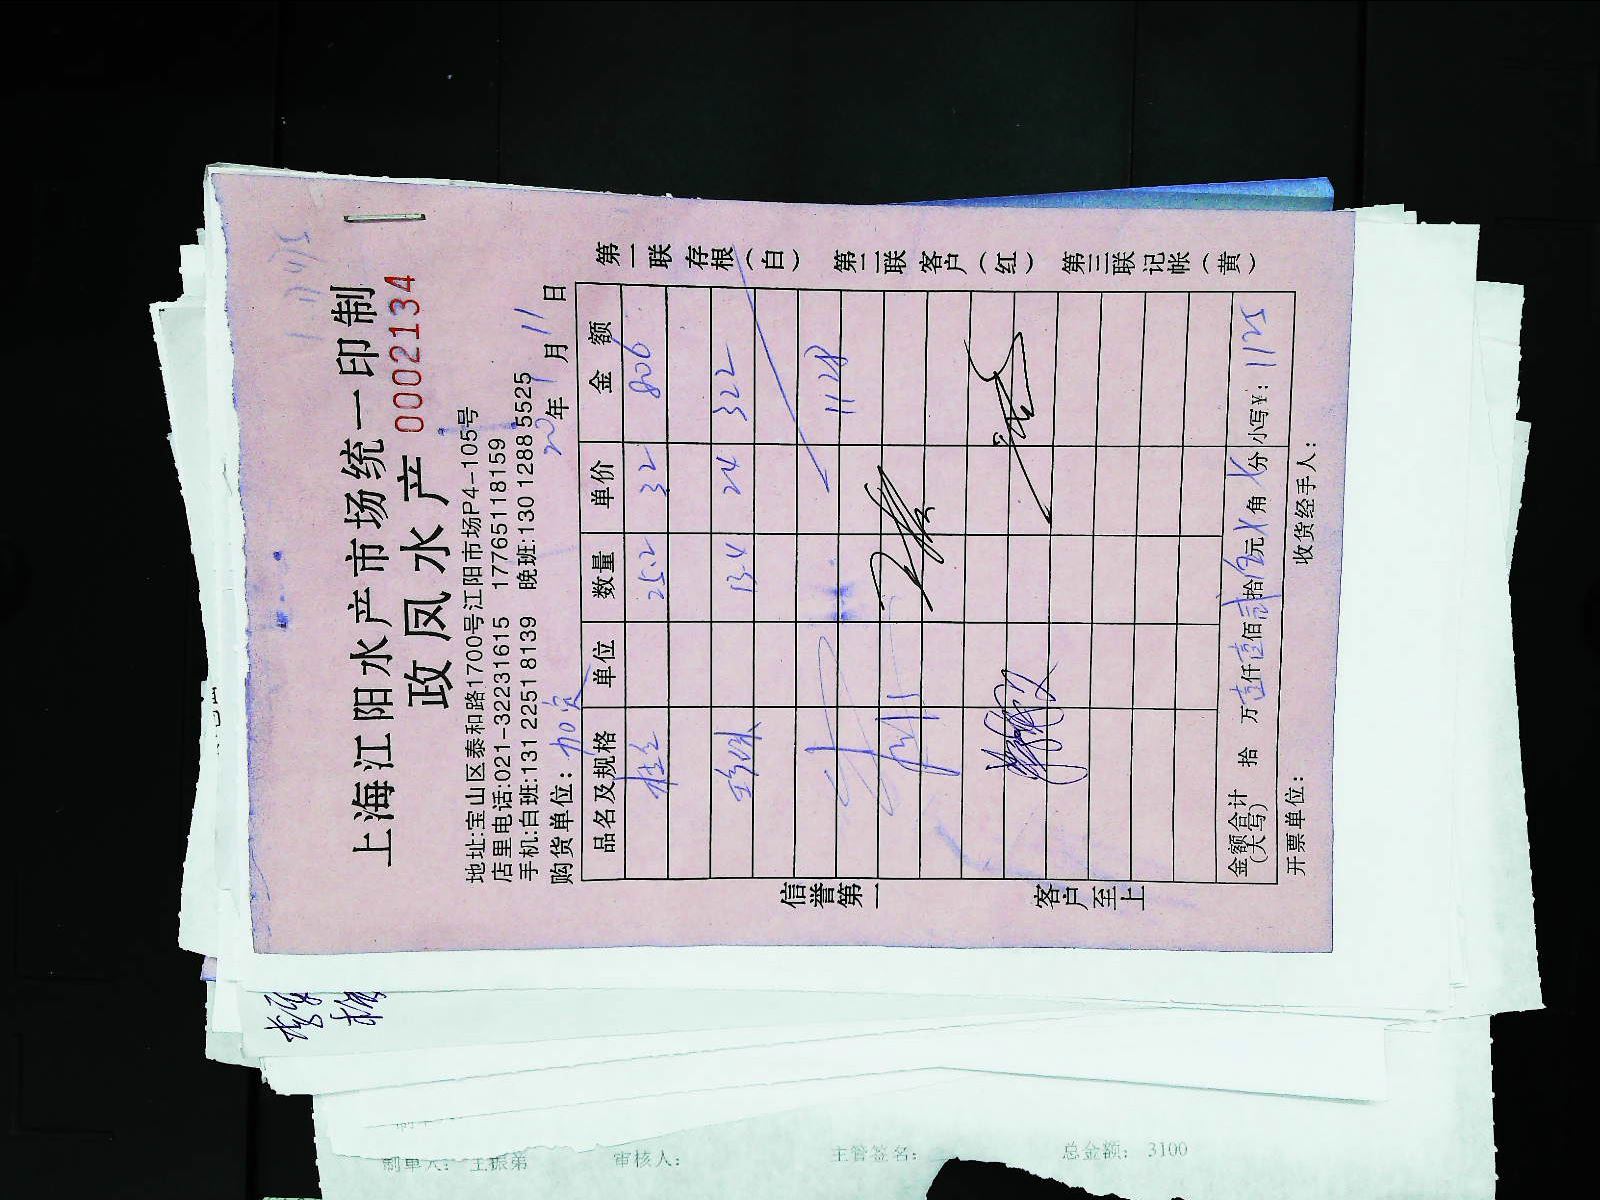 上海江阳水产市场统一印制
政凤水产 0002134
地址:宝山区泰和路1700号江阳市场P4-105号
店里电话:021-32231615 17765118159
手机:白班:131 2251 8139 晚班:130 1288 5525
购货单位: 20 年 9 月 11 日
品名及规格 单位 数量 单价 金额
桂鱼 25.2 32 806
13.4 24 322
1128
金额合计(大写) 拾 万 壹仟 壹佰 贰拾 伍元 角 分 小写¥: 1125
开票单位: 收货经手人:
第一联 存根(白) 第二联 客户(红) 第三联 记帐(黄)
信誉第一
客户至上
制单人: 王振弟 审核人: 主管签名: 总金额: 3100